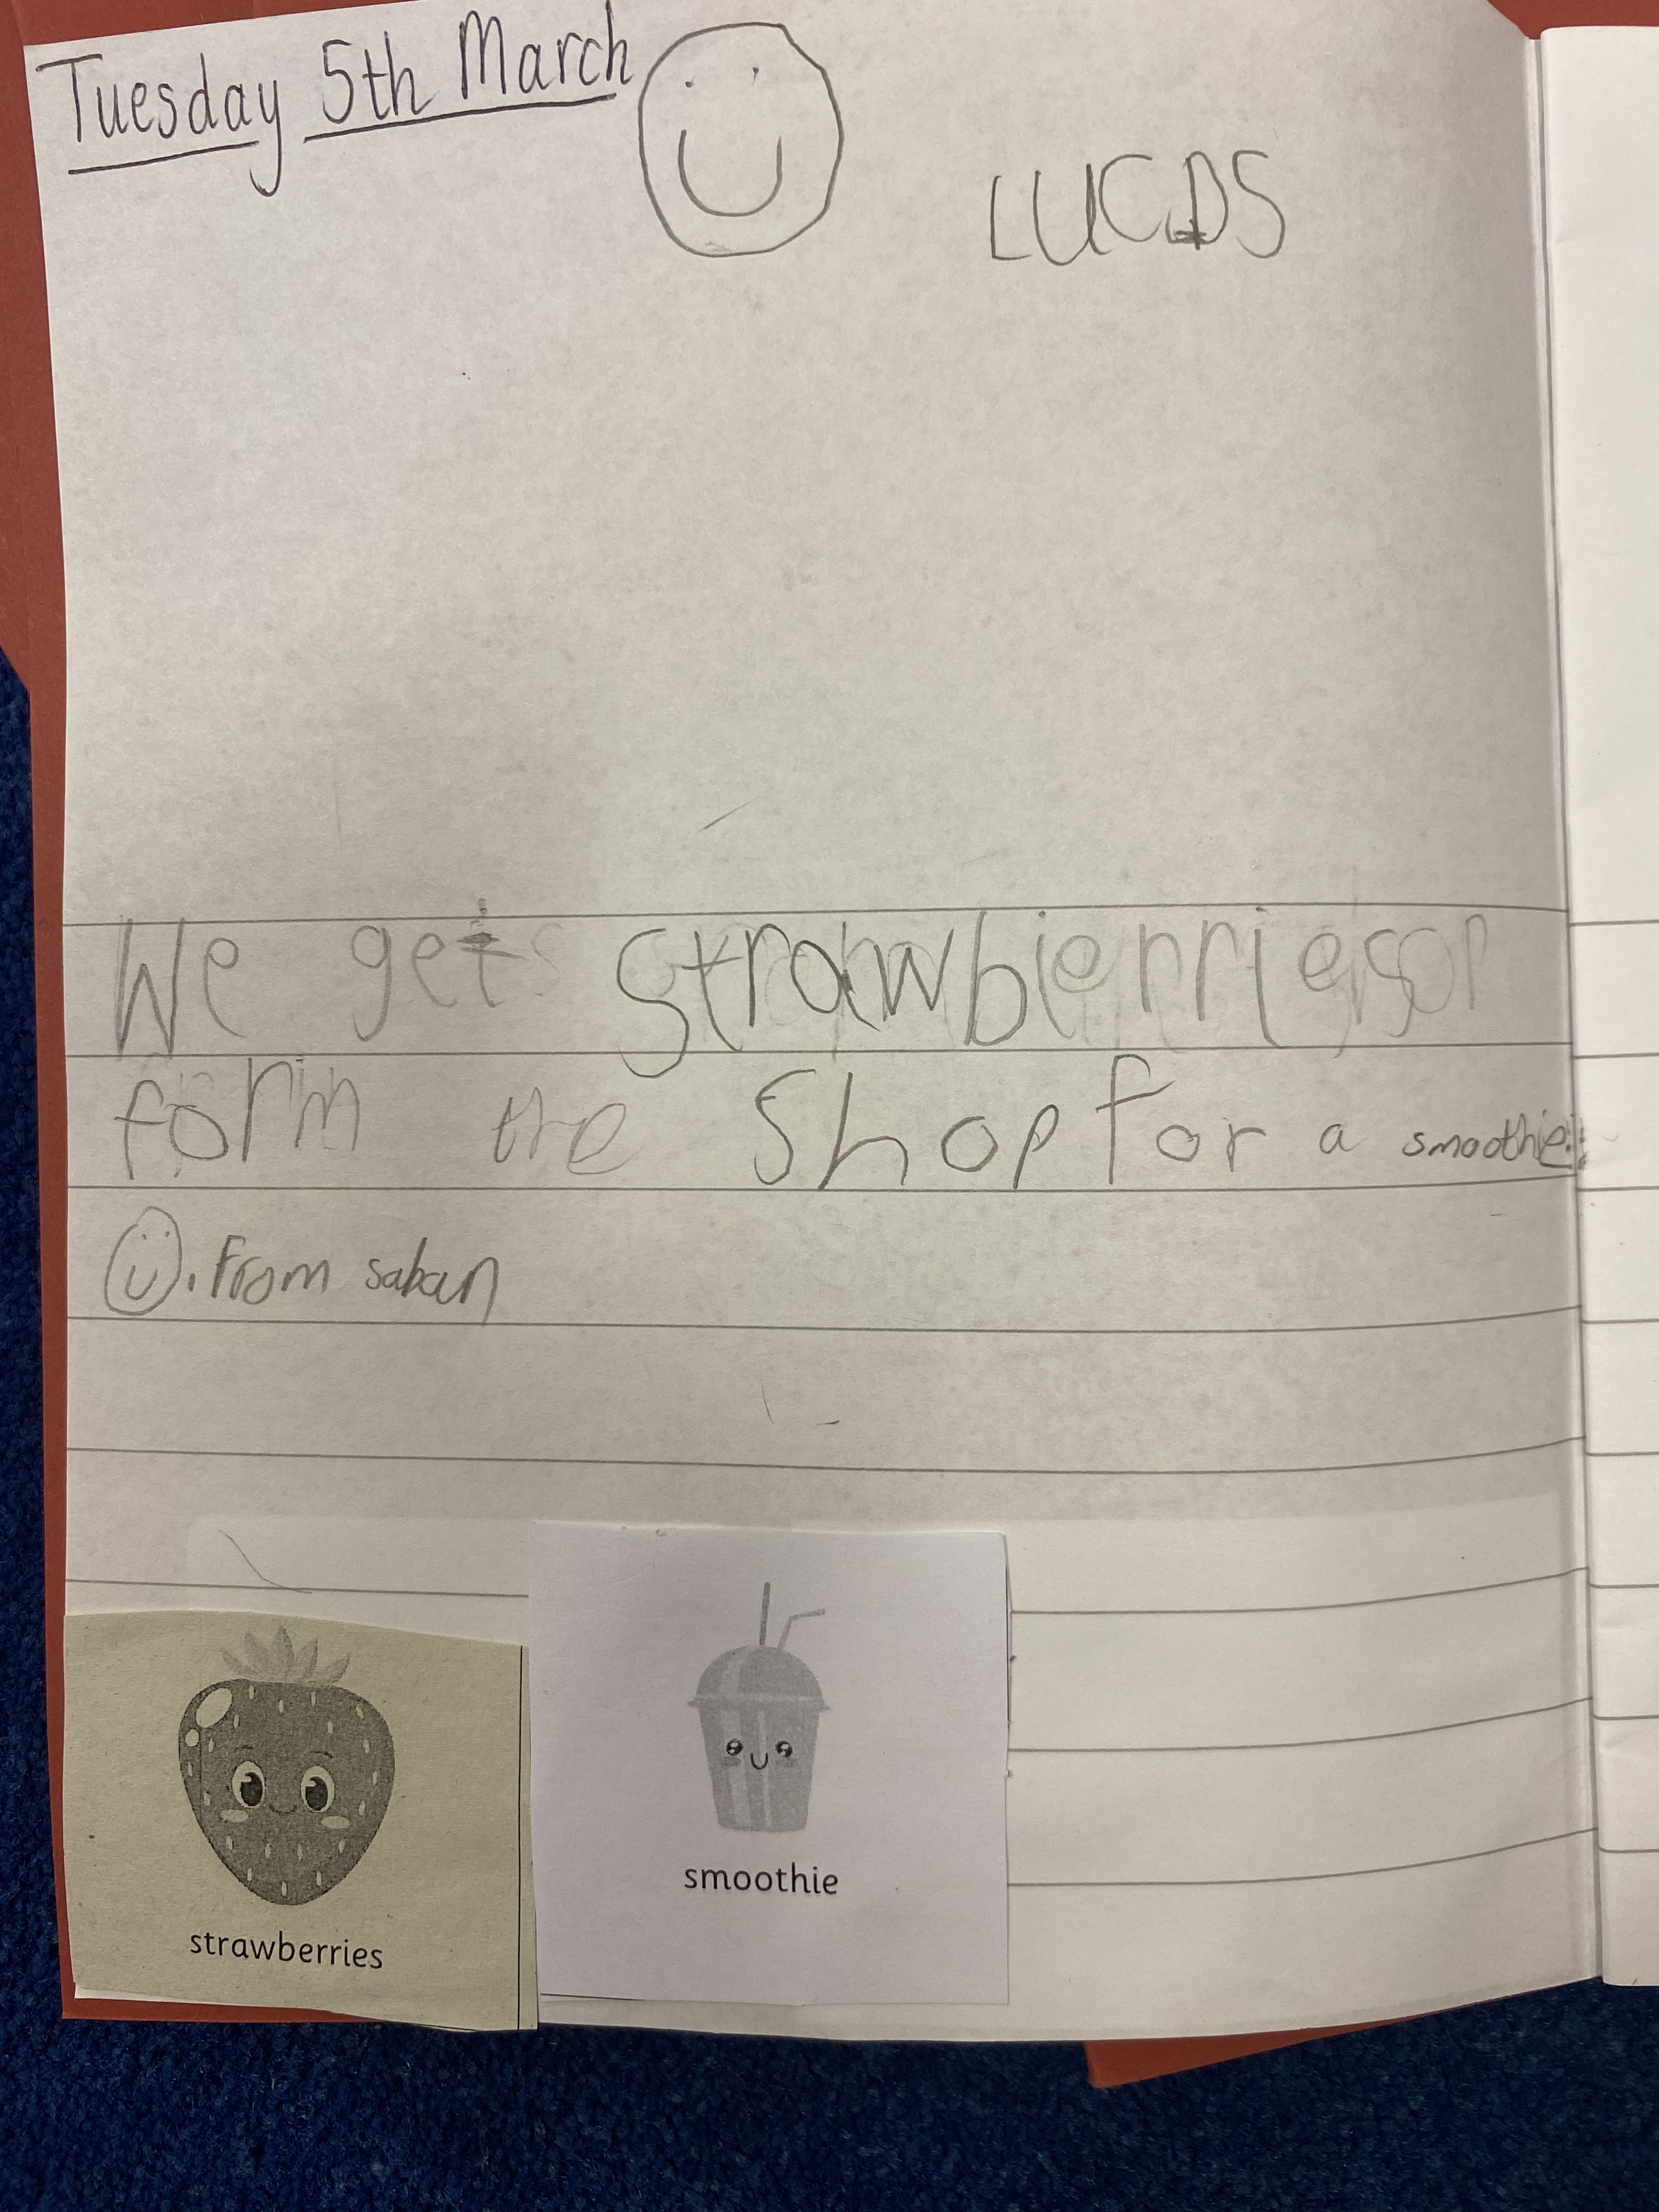 Tuesday 5th March
LUCAS
We get strawberries
form the Shop for a smoothie.
. From saban
strawberries
smoothie